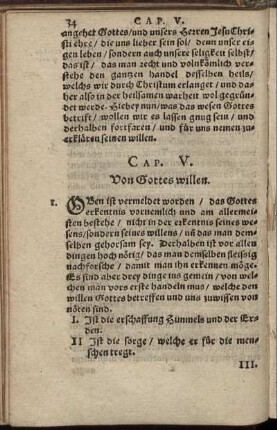 34 CAP. V.
angehet Gottes/und unsers Herren Jesu Chri-
sti ehre/ die uns lieber sein sol/ denn unser ei-
gen leben/ sondern auch unsere seligkeit selbst/
das ist/ das man recht und volnkömlich ver-
stehe den gantzen handel desselben heils/
welchs wir durch Christum erlanget/ und da-
her also in der heilsamen warheit wol gegrün-
det werde. Hiebey nun/was das wesen Gottes
betrift/ wollen wir es lassen gnug sein/ und
derhalben fortfaren/ und für uns nemen zu-
erklären seinen willen.
CAP. V.
Von Gottes willen.
1. OBen ist vermeldet worden/ das Gottes
erkentnis vornemlich und am allermei-
sten bestehe/ nicht in der erkentnis seines we-
sens/sondern seines willens/ uñ das man dem-
selben gehorsam sey. Derhalben ist vor allen
dingen hoch nötig/ das man demselben fleissig
nachforsche/ damit man ihn erkennen möge.
Es sind aber drey dinge ins gemein/ von wel-
chen man vors erste handeln mus/ welche den
willen Gottes betreffen und uns zuwissen von
nören sind.
I. Ist die erschaffung Himmels und der Er-
den.
II Ist die sorge/ welche er für die men-
schen tregt.
III.